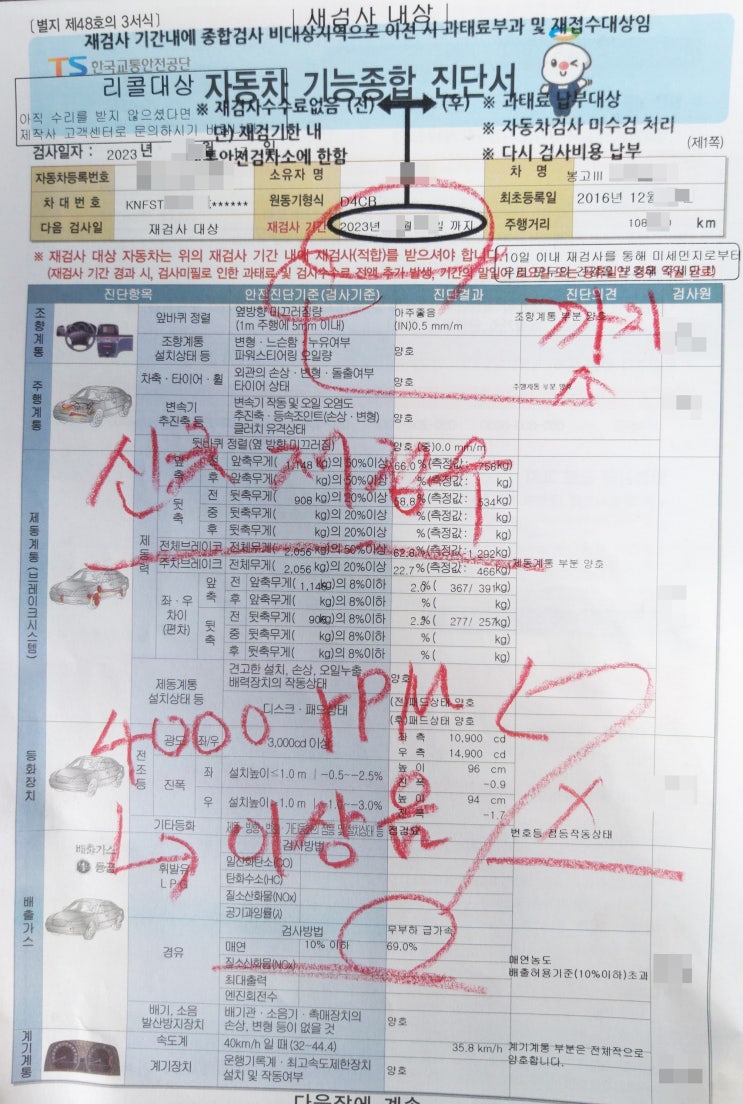 [별지 제48호의 3서식]
재검사 내상
재검사 기간내에 종합검사 비대상지역으로 이전 시 과태료부과 및 재접수대상임
TS 한국교통안전공단
리콜대상
자동차 기능종합 진단서
아직 수리를 받지 않으셨다면
제작사 고객센터로 문의하시기
※ 재검사수수료없음 (전) (후) ※ 과태료 납부대상
단) 재검기한 내 ※ 자동차검사 미수검 처리
안전검사소에 한함 ※ 다시 검사비용 납부
(제1쪽)
검사일자 : 2023 년 일
자동차등록번호 소유자 명 차 명 봉고III
차 대 번 호 KNFST ****** 원동기형식 D4CB 최초등록일 2016년 12
다음 검사일 재검사 대상 재검사 기간 2023년 일 까지 주행거리 108 km
※ 재검사 대상 자동차는 위의 재검사 기간 내에 재검사(적합)를 받으셔야 합니다
10일 이내 재검사를 통해 미세먼지로부터
진단항목 안전진단기준(검사기준) 진단결과 진단의견 검사원
조향계통
앞바퀴 정렬 옆방향 미끄러짐량 아주좋음 조향계통 부분 양호
(1m 주행에 5mm 이내) (IN)0.5 mm/m
조향계통 변형·느슨함·누유여부 양호
설치상태 등 파워스티어링 오일량
까지
주행계통
차축·타이어·휠 외관의 손상·변형·돌출여부 양호 주행계통 부분 양호
타이어 상태
변속기 변속기 작동 및 오일 오염도 양호
추진축 등 추진축·등속조인트(손상·변형)
클러치 유격상태
뒷바퀴 정렬(옆 방향 미끄러짐) 양호 (중)0.0 mm/m
제동계통(브레이크시스템)
제동력
앞축 전 앞축무게( 1,148 kg)의 50%이상 66.0 %(측정값: 758kg)
후 앞축무게( kg)의 50%이상 %(측정값: kg)
뒷축 전 뒷축무게( 908 kg)의 20%이상 58.8 %(측정값: 534kg)
중 뒷축무게( kg)의 20%이상 %(측정값: kg)
후 뒷축무게( kg)의 20%이상 %(측정값: kg)
전체브레이크 전체무게( 2,056 kg)의 50%이상 62.8%(측정값: 1,292kg)
주차브레이크 전체무게( 2,056 kg)의 20%이상 22.7%(측정값: 466kg) 제동계통 부분 양호
좌·우 차이 (편차)
앞축 전 앞축무게( 1,148kg)의 8%이하 %( 367/ 391kg)
후 앞축무게( kg)의 8%이하 %( kg)
뒷축 전 뒷축무게( 908kg)의 8%이하 %( 277/ 257kg)
중 뒷축무게( kg)의 8%이하 %( kg)
후 뒷축무게( kg)의 8%이하 %( kg)
제동계통 견고한 설치, 손상, 오일누출 양호
설치상태 등 배력장치의 작동상태
디스크·패드상태 (전)패드상태 양호
(후)패드상태 양호
4000 rPM
등화장치
전조등
광도 좌/우 3,000cd 이상 좌 측 10,900 cd
우 측 14,900 cd
진폭 좌 설치높이≤1.0m -0.5~-2.5% 높 이 96 cm
진 폭 -0.9
우 설치높이 1.0m ~-3.0% 높 이 94 cm
진 폭 -1.7
X
이상음
기타등화 점검요 번호등 점등작동상태
배출가스
배출가스
❶ 등급
휘발유 L P G
검사방법
일산화탄소(CO)
탄화수소(HC)
질소산화물(NOx)
공기과잉률(λ)
경유
검사방법 무부하 급가속
매연 10% 이하 69.0% 매연농도
질소산화물(NOx) 배출허용기준(10%이하)초과
최대출력
엔진회전수
배기, 소음 배기관·소음기·촉매장치의 양호
발산방지장치 손상, 변형 등이 없을 것
계기계통
속도계 40km/h 일 때 (32~44.4) 35.8 km/h 계기계통 부분은 전체적으로
양호합니다.
계기장치 운행기록계·최고속도제한장치 양호
설치 및 작동여부
다음장에 계속